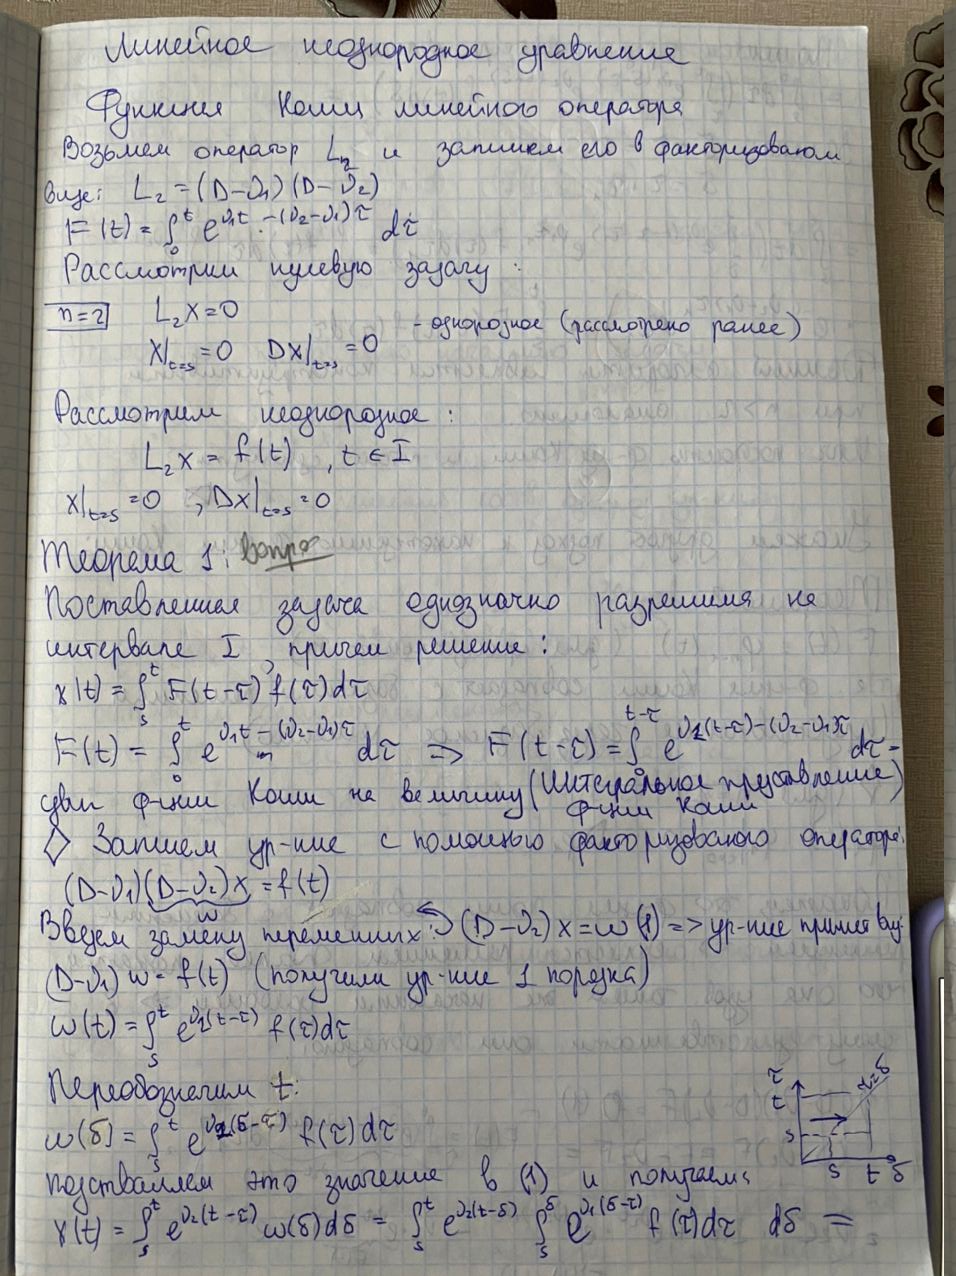 Линейное неоднородное уравнение
Функция Коши линейного оператора
Возьмем оператор L₂ и запишем его в факторизованом
виде: L₂ = (D-ν₁)(D-ν₂)
F(t) = ∫₀ᵗ e^{ν₁t · -(ν₂-ν₁)τ} dτ
Рассмотрим нулевую задачу:
n=2 L₂x=0
- однородное (рассмотрено ранее)
x|ₜ₌ₛ=0 Dx|ₜ₌ₛ=0
Рассмотрим неоднородное:
L₂x = f(t), t ∈ I
x|ₜ₌ₛ=0, Dx|ₜ₌ₛ=0
Теорема 1: вопрос
Поставленная задача однозначно разрешима на
интервале I, причем решение:
x(t) = ∫ₛᵗ F(t-τ) f(τ)dτ
F(t) = ∫₀ᵗ e^{ν₁t - (ν₂-ν₁)τ} dτ => F(t-τ) = ∫₀^{t-τ} e^{ν₁(t-τ)-(ν₂-ν₁)τ} dτ -
сдвиг ф-ции Коши на величину (Интегральное представление
ф-ции Коши)
◊ Запишем ур-ние с помощью факторизованого оператора:
(D-ν₁)(D-ν₂)x = f(t)
w
Введем замену переменных: (D-ν₂)x=w (1) => ур-ние примет вид:
(D-ν₁)w = f(t) (получили ур-ние 1 порядка)
w(t) = ∫ₛᵗ e^{ν₁(t-τ)} f(τ)dτ
Переобозначим t:
w(δ) = ∫ₛᵗ e^{ν₁(δ-τ)} f(τ)dτ
τ
t
s
s t δ
τ=δ
подставляем это значение в (1) и получаем:
x(t) = ∫ₛᵗ e^{ν₂(t-τ)} w(δ)dδ = ∫ₛᵗ e^{ν₂(t-δ)} ∫ₛ^δ e^{ν₁(δ-τ)} f(τ)dτ dδ =